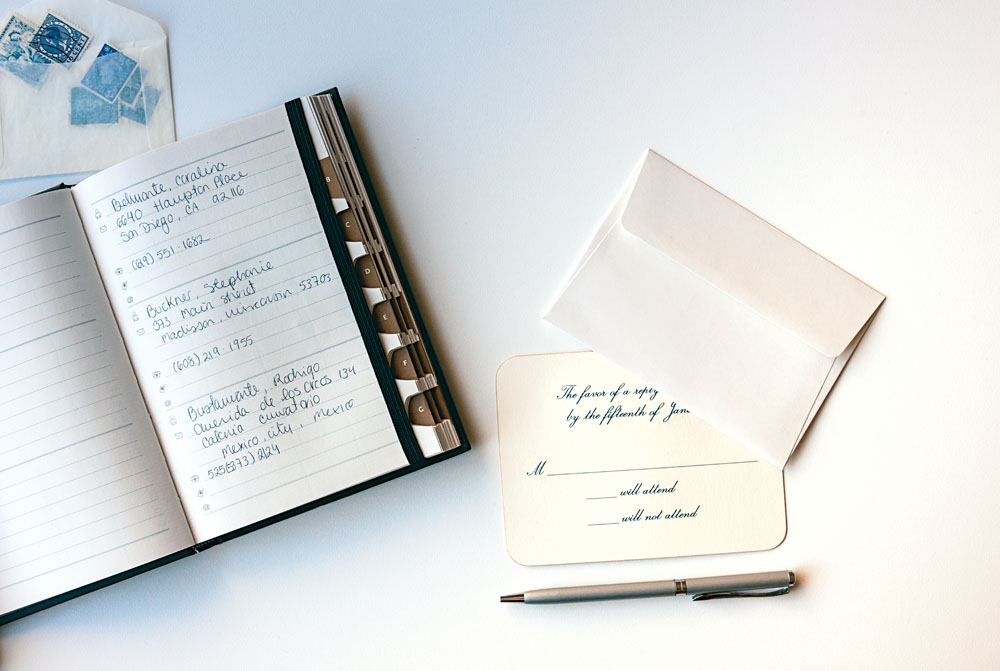 Belmonte, Caralina
6640 Hampton Place
San Diego, CA 92116
(619) 551-1682
Buckner, Stephanie
373 Main Street
Madison, Wisconsin 53703
(608) 219-1955
Bustamante, Rodrigo
Avenida de los Arcos 134
Colonia
Mexico City, Mexico
525(5373)2124
B
C
D
E
F
G
The favor of a reply
by the fifteenth of Jan
M
will attend
will not attend